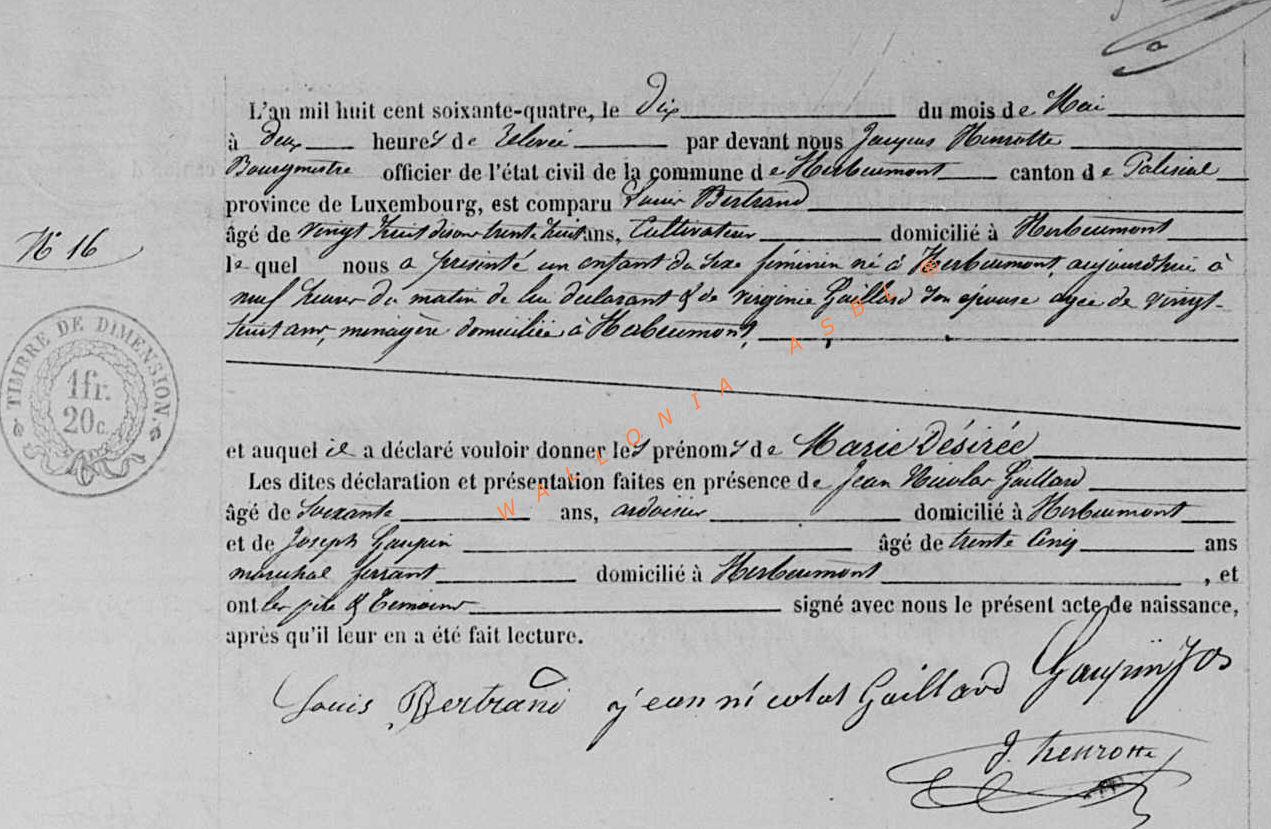 L'an mil huit cent soixante-quatre, le Dix du mois de Mai
à deux heures de relevée par devant nous Jacques Henrotte
Bourgmestre officier de l'état civil de la commune de Herbeumont canton de Paliseul
province de Luxembourg, est comparu Louis Bertrand
âgé de vingt huit disons trente huit ans, Cultivateur domicilié à Herbeumont
N° 16
lequel nous a présenté un enfant du sexe feminin né à Herbeumont, aujourdhui à
neuf heures du matin de lui déclarant & de virginie Gaillard son épouse agée de vingt-
huit ans, menagère domiciliée à Herbeumont,
TIMBRE DE DIMENSION
1fr.
20c.
et auquel il a déclaré vouloir donner les prénoms de Marie Désirée
Les dites déclaration et présentation faites en présence de Jean Nicolas Gaillard
âgé de soixante ans, ardoisier domicilié à Herbeumont
et de Joseph Gaupin âgé de trente Cinq ans
maréchal ferrant domicilié à Herbeumont, et
ont les père & temoins signé avec nous le présent acte de naissance,
après qu'il leur en a été fait lecture.
Louis Bertrand jean nicolas Gaillard Gaupin Jos
J. Henrotte
WALLONIA ASBL ©